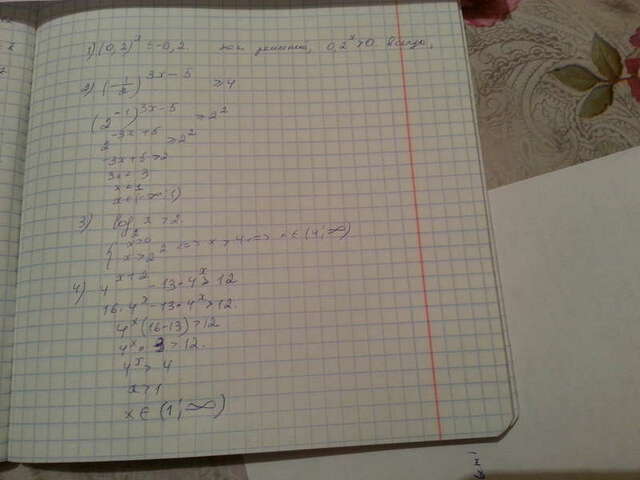 1) (0,2)^x ≤ -0,2. нет решений, 0,2^x > 0 всегда.
2) (-1/2)^{3x-5} ≥ 4
(2^{-1})^{3x-5} ≥ 2^2
2^{-3x+5} ≥ 2^2
-3x+5 ≥ 2
x = 1
3) log_2 x > 2.
{ x>0
x > 2^2 <=> x > 4 <=>
4) 4^{x+2} - 13·4^x > 12
16·4^x - 13·4^x > 12.
4^x (16-13) > 12
4^x · 3 > 12.
4^x > 4
x > 1
x ∈ (1; ∞)